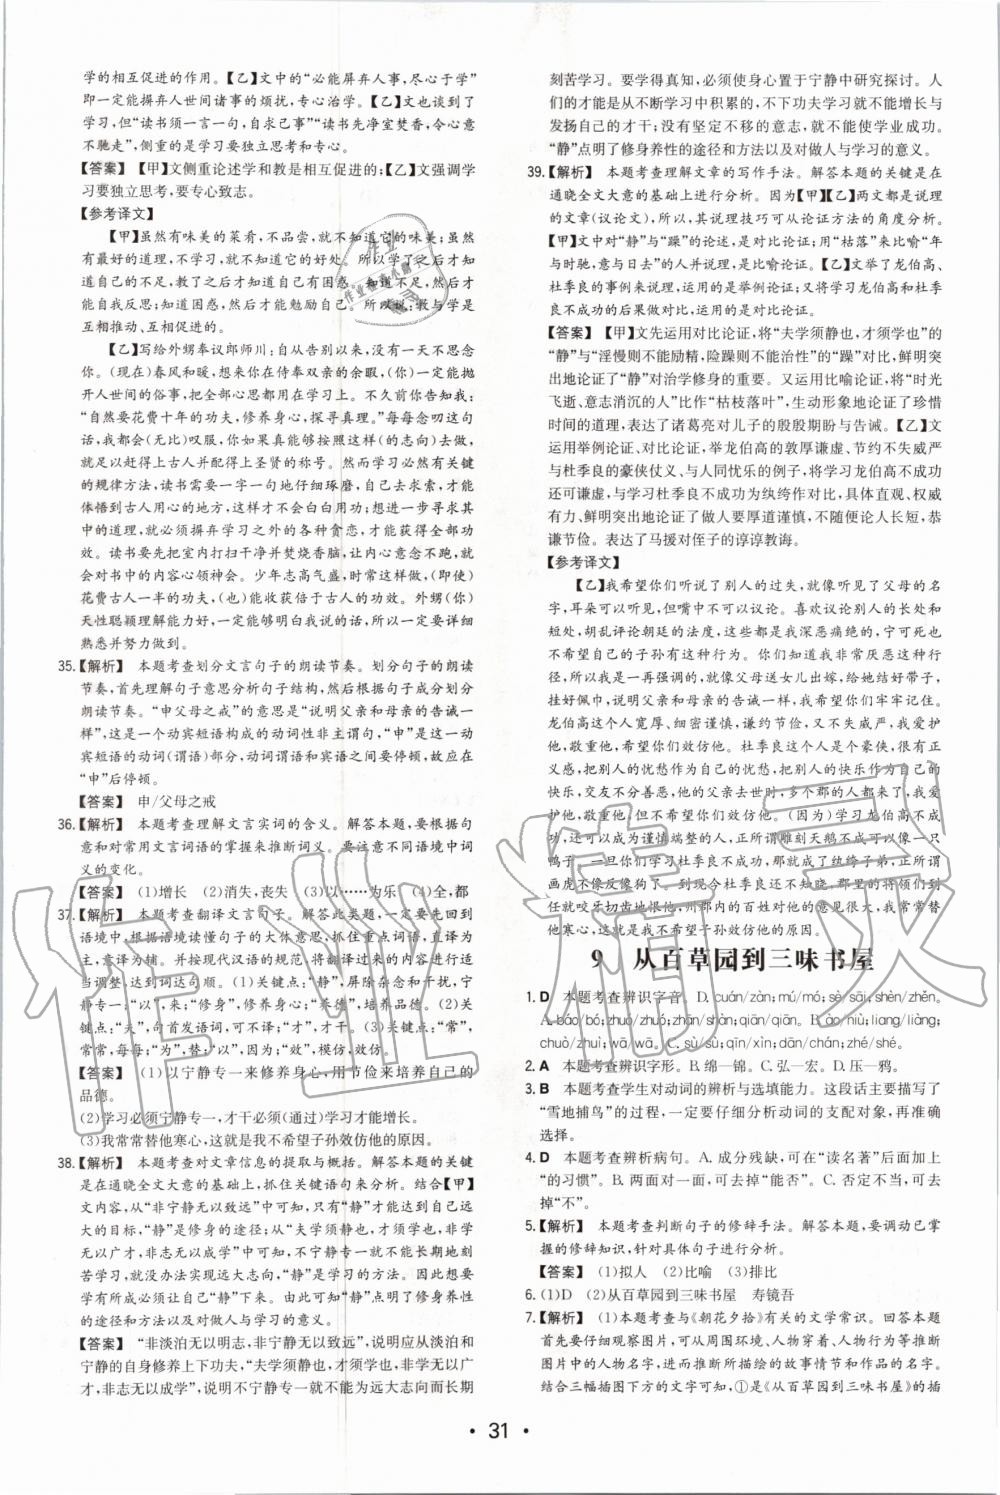 学的相互促进的作用。【乙】文中的“必能屏弃人事，尽心于学”
即一定能摒弃人世间诸事的烦扰，专心治学。【乙】文也谈到了
学习，但“读书须一言一句，自求己事”“读书先净室焚香，令心意
不驰走”，侧重的是学习要独立思考和专心。
【答案】 【甲】文侧重论述学和教是相互促进的；【乙】文强调学
习要独立思考，要专心致志。
【参考译文】
【甲】虽然有味美的菜肴，不品尝，就不知道它的味美；虽然
有最好的道理，不学习，就不知道它的好处。所以学了之后才知
道自己的不足，教了之后才知道自己的困惑。知道不足，然后才
能自我反思；知道困惑，然后才能勉励自己。所以说：教与学是
互相推动、互相促进的。
【乙】写给外甥奉议郎师川：自从告别以来，没有一天不思念
你。（现在）春风和暖，想来你在侍奉双亲的余暇，（你）一定能抛
开人世间的俗事，把全部心思都用在学习上。不久前你告诉我：
“自然要花费十年的功夫，修养身心，探寻真理。”每每念叨这句
话，我都会（无比）叹服，你如果真的能够按照这样（的志向）去做，
就足以赶得上古人并配得上圣贤的称号。然而学习必然有关键
的规律方法，读书需要一字一句地仔细琢磨，自己去求索，才能
体悟到古人用心的地方，这样才不会白白用功。想进一步寻求其
中的道理，就必须摒弃学习之外的各种贪恋，才能获得全部功
效。读书要先把室内打扫干净并焚烧香脑，让内心意念不驰骋，
会对书中的内容心领神会。少年志高气盛，时常这样做，（即使）
花费古人一半的功夫，（也）能收获倍于古人的功效。外甥（你）
天性聪颖理解能力好，一定能够明白我说的话，所以一定要详细
熟悉并努力做到。
35.【解析】 本题考查划分文言句子的朗读节奏。划分句子的朗读
节奏，首先理解句子意思分析句子结构，然后根据句子成分划分
朗读节奏。“申父母之戒”的意思是“说明父亲和母亲的告诫一
样”，这是一个动宾短语构成的动词性非主谓句，“申”是这一动
宾短语的动词（谓语）部分，动词谓语和宾语之间要停顿，故应在
“申”后停顿。
【答案】 申/父母之戒
36.【解析】 本题考查理解文言实词的含义。解答本题，要根据句
意和对常用文言词语的掌握来推断词义。要注意不同语境中词
义的变化。
【答案】 （1）增长 （2）消失，丧失 （3）以……为乐 （4）全，都
37.【解析】 本题考查翻译文言句子。解答此类题，一定要先回到
语境中，根据语境读懂句子的大体意思，抓住重点词语，直译为
主，意译为辅。并按现代汉语的规范，将翻译过来的内容进行适
当调整，达到词达句顺。（1）关键点：“静”，屏除杂念和干扰，宁静
专一；“以”，来；“修身”，修养身心；“养德”，培养品德。（2）关
键点：“夫”，句首发语词，可不译；“才”，才干。（3）关键点：“常”，
常常，每每；“为”，替；“以”，因为；“效”，模仿，效仿。
【答案】 （1）以宁静专一来修养身心，用节俭来培养自己的
品德。
（2）学习必须宁静专一，才干必须（通过）学习才能增长。
（3）我常常替他寒心，这就是我不希望子孙效仿他的原因。
38.【解析】 本题考查对文章信息的提取与概括。解答本题的关键
是在通晓全文大意的基础上，抓住关键语句来分析。结合【甲】
文内容，从“非宁静无以致远”中可知，只有身心宁静才能实现远
大的目标，“静”是修身的途径；从“夫学须静也，才须学也，非学
无以广才，非志无以成学”中可知，不宁静专一就不能长期地刻
苦学习，就没办法实现远大志向，“静”是学习的方法。因此，想要
有所成就必须让自己“静”下来。由此可知“静”点明了修身养性
的途径和方法以及对做人与学习的意义。
【答案】 “非淡泊无以明志，非宁静无以致远”，说明应从淡泊和
宁静的自身修养上下功夫，“夫学须静也，才须学也，非学无以广
才，非志无以成学”，说明不宁静专一就不能为实现远大志向而长期
刻苦学习。要学得真知，必须使身心置于宁静中研究探讨。人
们的才能是从不断学习中积累的，不下功夫学习就不能增长与
发扬自己的才干；没有坚定不移的意志，就不能使学业成功。
“静”点明了修身养性的途径和方法以及对做人与学习的意义。
39.【解析】 本题考查理解文章的写作手法。解答本题的关键是在
通晓全文大意的基础上进行分析。因为【甲】【乙】两文都是说理
的文章（议论文），所以，其说理技巧可从论证方法的角度分析。
【甲】文中对“静”与“躁”的论述，是对比论证；用“枯落”来比喻“年
与时驰，意与日去”的人，是比喻论证。【乙】文举了龙伯高、
杜季良的事例来论述，运用的是举例论证；又将学习龙伯高和杜季
良不成功的后果做对比，运用的是对比论证。
【答案】 【甲】文先运用对比论证，将“夫学须静也，才须学也”的
“静”与“淫慢则不能励精，险躁则不能治性”的“躁”对比，鲜明
突出地论证了“静”对治学修身的重要。又运用比喻论证，将“时光
飞逝、意志消沉的人”比作“枯枝落叶”，生动形象地论证了珍惜
时间的道理，表达了诸葛亮对儿子的殷殷期盼与告诫。【乙】文
运用举例论证、对比论证，举龙伯高的敦厚谦虚、节约不失威严
与杜季良的豪侠仗义、与人同忧乐的例子，将学习龙伯高不成功
还可谦虚，与学习杜季良不成功为纨绔作对比，具体直观、权威
有力、鲜明突出地论证了做人要厚道谨慎，不随便论人是非，恭
谦节俭。表达了马援对侄子的谆谆教诲。
【参考译文】
【乙】我希望你们听说了别人的过失，就像听见了父母的名
字，耳朵可以听见，但嘴中不可以议论。喜欢议论别人的长处和
短处，胡乱评论朝廷的法度，这些都是我深恶痛绝的，宁可死也
不希望自己的子孙有这种行为。你们知道我非常厌恶这种行
径，所以我是一再强调的，就像父母送女儿出嫁，给她结好带子，
挂好佩巾，说明父亲和母亲的告诫一样，我希望你们牢牢记住。
龙伯高这个人宽厚、细密谨慎，谦约节俭，又不失威严，我爱护
他，敬重他，希望你们效仿他。杜季良这个人是个豪侠，很有正
义感，把别人的忧愁作为自己的忧愁，把别人的快乐作为自己的
快乐，交友不分善恶，他的父亲去世时，多个郡的人都来了，我爱
护他，敬重他，但不希望你们效仿他。（因为）学习龙伯高不成
功，还可以成为谨慎端整的人，正所谓雕刻天鹅不成可以像一只
鸭子；一旦你们学习杜季良不成功，那就成了纨绔子弟，正所谓
画虎不像反像狗了。到现今杜季良还不知晓，郡里的将领们到任就
咬牙切齿地恨他，州郡内的百姓对他的意见很大，我常常
替他寒心，这就是我不希望子孙效仿他的原因。
9 从百草园到三味书屋
1. D 本题考查辨识字音。D. cuán/zàn；mú/mó；sè/sāi；shèn/zhēn。
A. báo/bó；zhuó/zhuó；zhān/shàn；qiān/qiān。B. ào/niù；liang/liàng；
chuò/zhuì；wā/wā。C. sù/sù；qīn/xìn；dān/chán；zhé/shé。
2. A 本题考查辨识字形。B. 绵—锦。C. 弘—宏。D. 压—厌。
3. B 本题考查学生对动词的辨析与选填能力。这段话主要描写了
“雪地捕鸟”的过程，一定要仔细分析动词的支配对象，再准确
选择。
4. D 本题考查辨析病句。A. 成分残缺，可在“读名著”后面加上
“的习惯”。B. 两面对一面，可去掉“能否”。C. 否定不当，可去
掉“不”。
5.【解析】 本题考查判断句子的修辞手法。解答本题，要调动已掌
握的修辞知识，针对具体句子进行分析。
【答案】 （1）拟人 （2）比喻 （3）排比
6. （1）D （2）从百草园到三味书屋 寿镜吾
7.【解析】 （1）本题考查与《朝花夕拾》有关的文学常识。回答本题
首先要仔细观察图片，可从周围环境、人物穿着、人物行为等推断
图片中的人物名字，进而推断所描绘的故事情节和作品的名字。
结合三幅插图下方的文字可知，①是《从百草园到三味书屋》的插
• 31 •